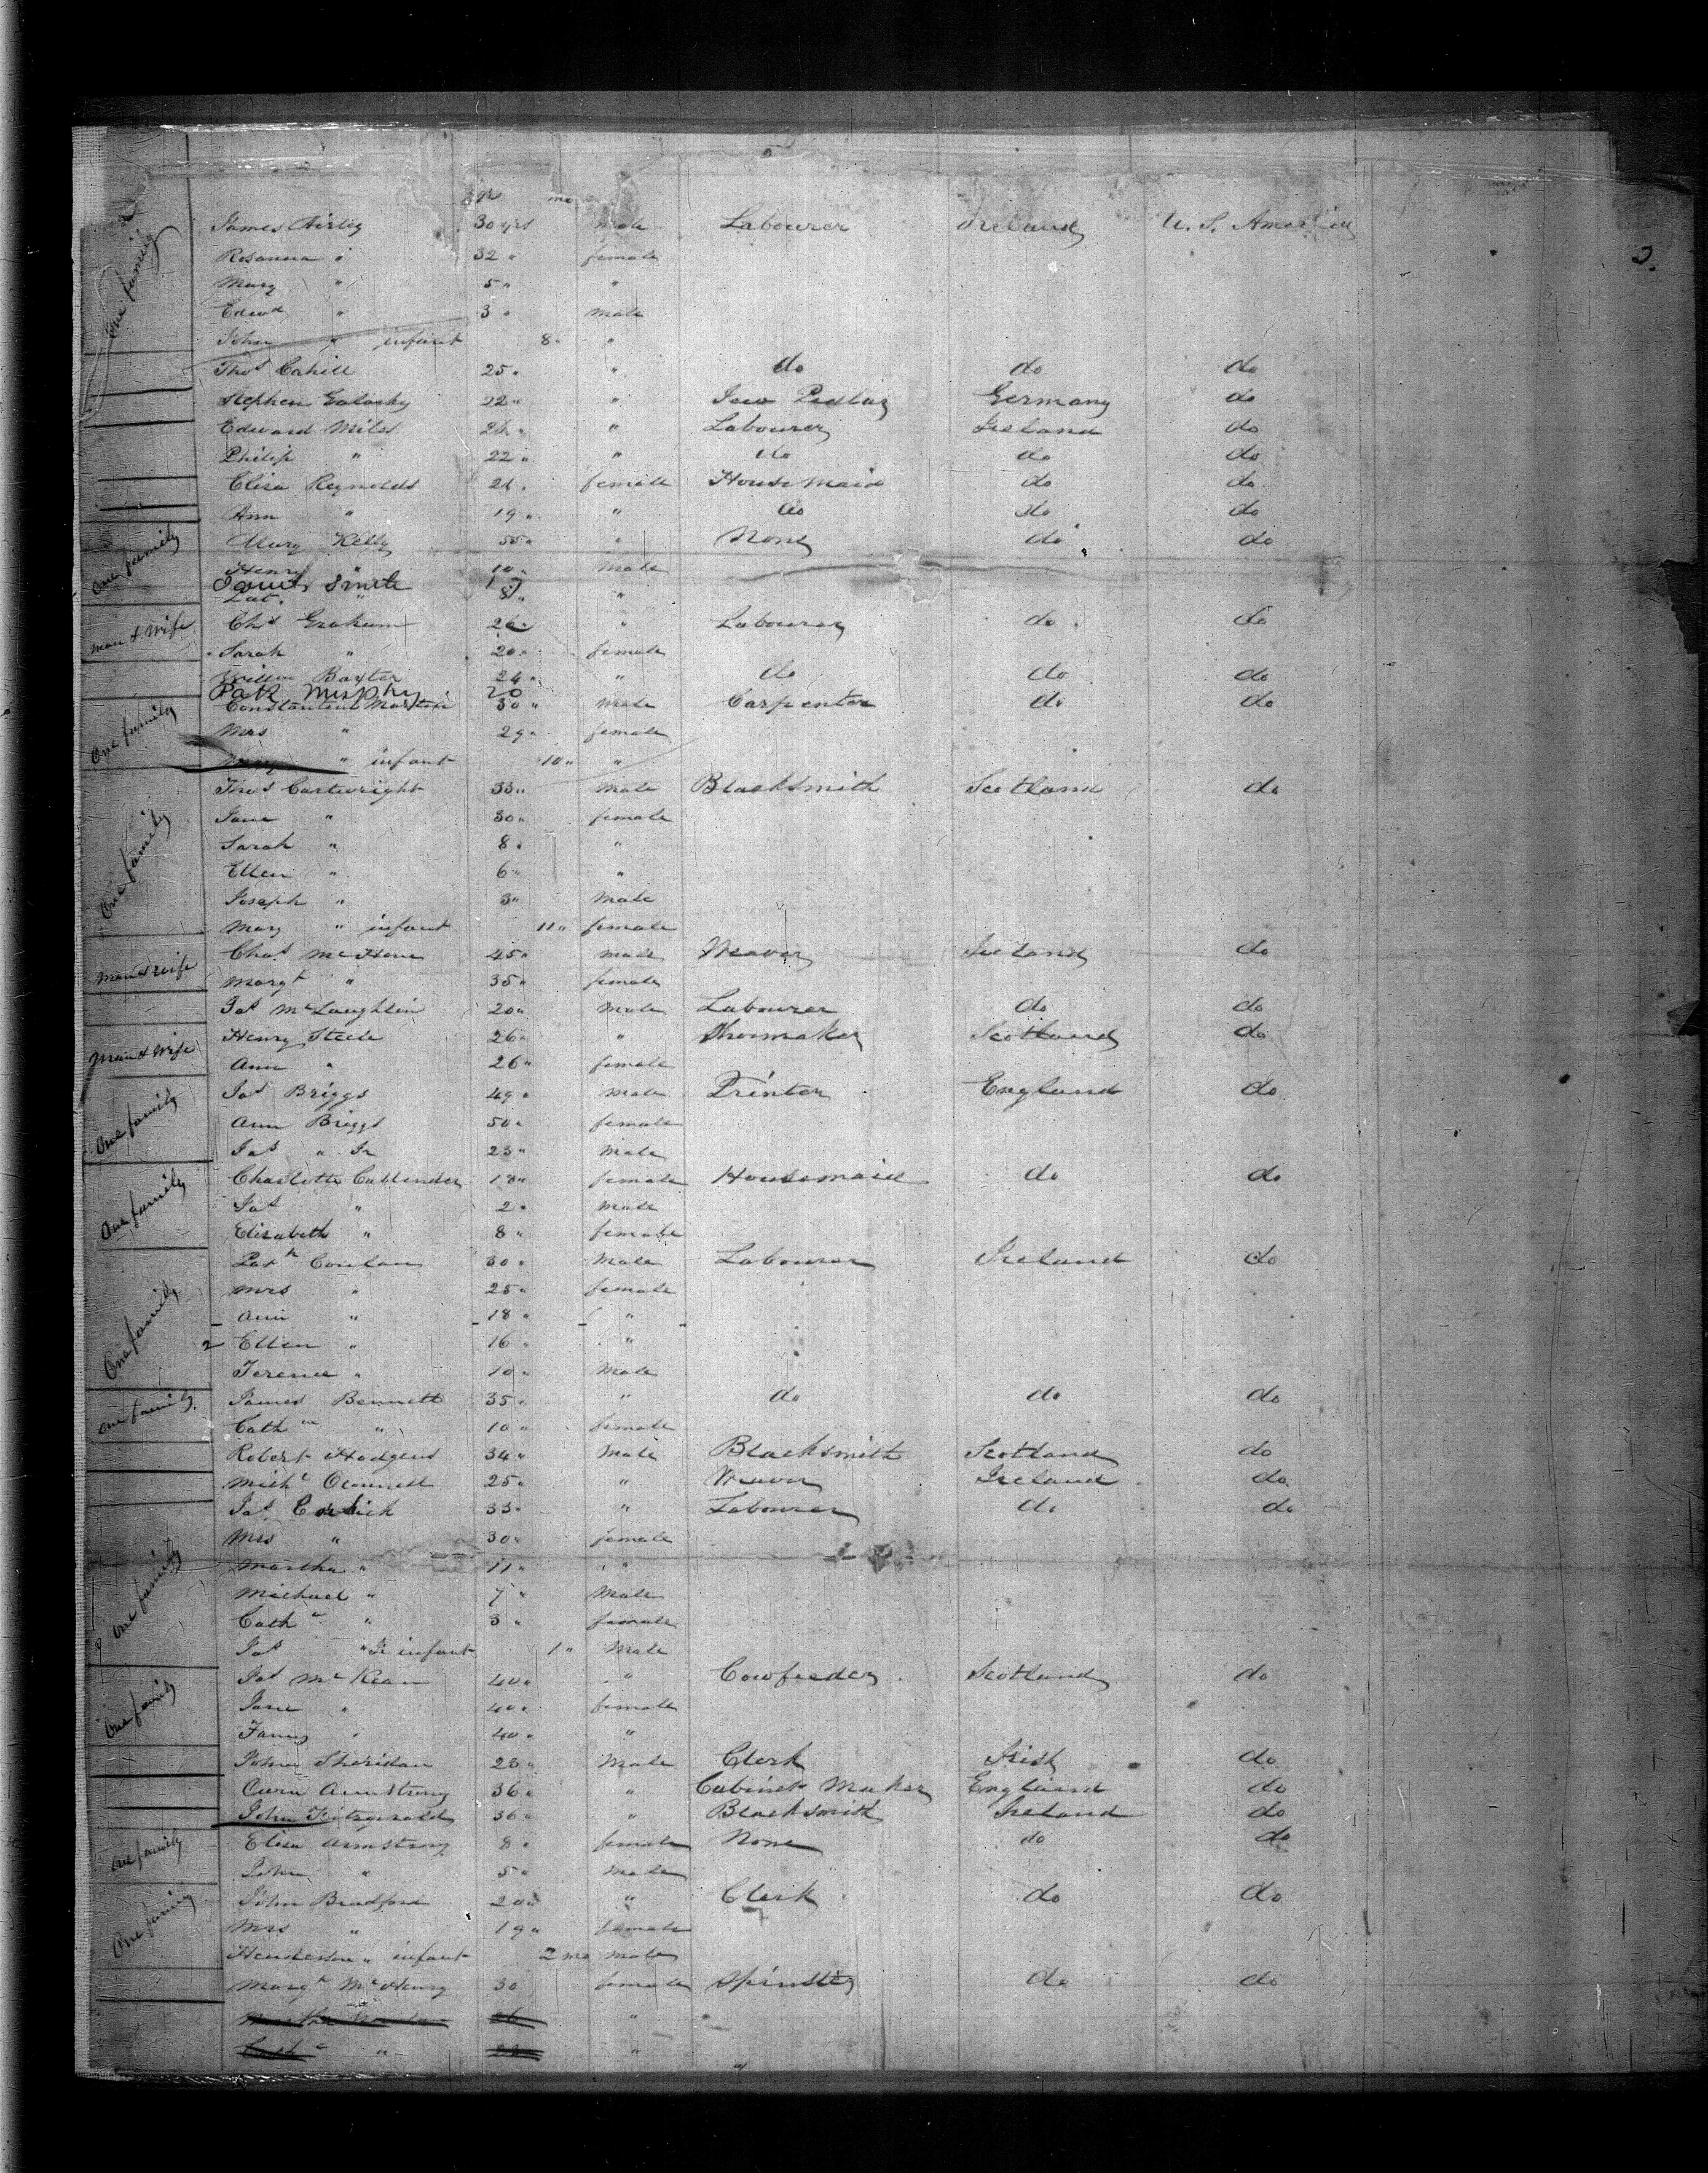 yrs mo
One family James Airley 30 yrs male Labourer Ireland U. S. America
2.
Rosanna " 32 " female
Mary " 5 " "
Edwd " 3 " male
John " infant 8 " "
Thos Cahill 25 " " do do do
Stephen 22 " " Jew Germany do
Edward Miles 24 " " Labourer Ireland do
Philip " 22 " " do do do
Eliza Reynolds 21 " female House Maid do do
Ann " 19 " " do do do
One family Mary Kelly 55 " " None do do
Henry 10 " male
James Smith 19
Pat. " 8 " "
Man & Wife Chs Graham 26 " " Labourer do do
Sarah " 20 " female
Baxter 24 " " do do do
Patk Murphy 20
One family Constantine 30 " male Carpenter do do
Mrs " 29 " female
" infant 10 " "
One family Thos Cartwright 33 " male Blacksmith Scotland do
Jane " 30 " female
Sarah " 8 " "
Ellen " 6 " "
Joseph " 3 " Male
Mary " infant 11 " female
Man & wife Chas McHone 45 " male Weaver Ireland do
Margt " 35 " female
Jas McLaughlin 20 " Male Labourer do do
Man & Wife Henry Steele 26 " " Shoemaker Scotland do
Ann " 26 " female
One family Jas Briggs 49 " Male Printer England do
Ann Briggs 50 " female
Jas " Jr 23 " Male
One family Charlotte Callender 18 " female Housemaid do do
Jas " 2 " Male
Elizabeth " 8 " female
One family Patk Conlan 30 " Male Labourer Ireland do
Mrs " 25 " female
Ann " 18 " "
2 Ellen " 16 " "
Terence " 10 " Male
One family James Bennett 35 " " do do do
Cathne " 10 " female
Robert Hodgens 34 " Male Blacksmith Scotland do
Michl Oconnell 25 " " Weaver Ireland do
One family Jas 33 " " Labourer do do
Mrs " 30 " female
Martha " 11 " "
Michael " 7 " Male
Cathe " 3 " female
Jas " Jr infant 1 " Male
One family Jas McKean 40 " " Cowfeeder Scotland do
Jane " 40 " female
Fanny " 40 " "
John Sheridan 23 " Male Clerk Irish do
Owen Armstrong 36 " " Cabinet Maker England do
John Fitzgerald 36 " " Blacksmith Ireland do
One family Eliza Armstrong 8 " female None do do
John " 5 " Male
One family John Bradford 20 " " Clerk do do
Mrs " 19 " female
Henderson " infant 2 mo male
Margt McHenry 30 female Spinster do do
Martha "
Cathe " " "